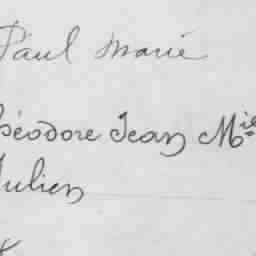 Paul Marie
Théodore Jean Mie
Julien